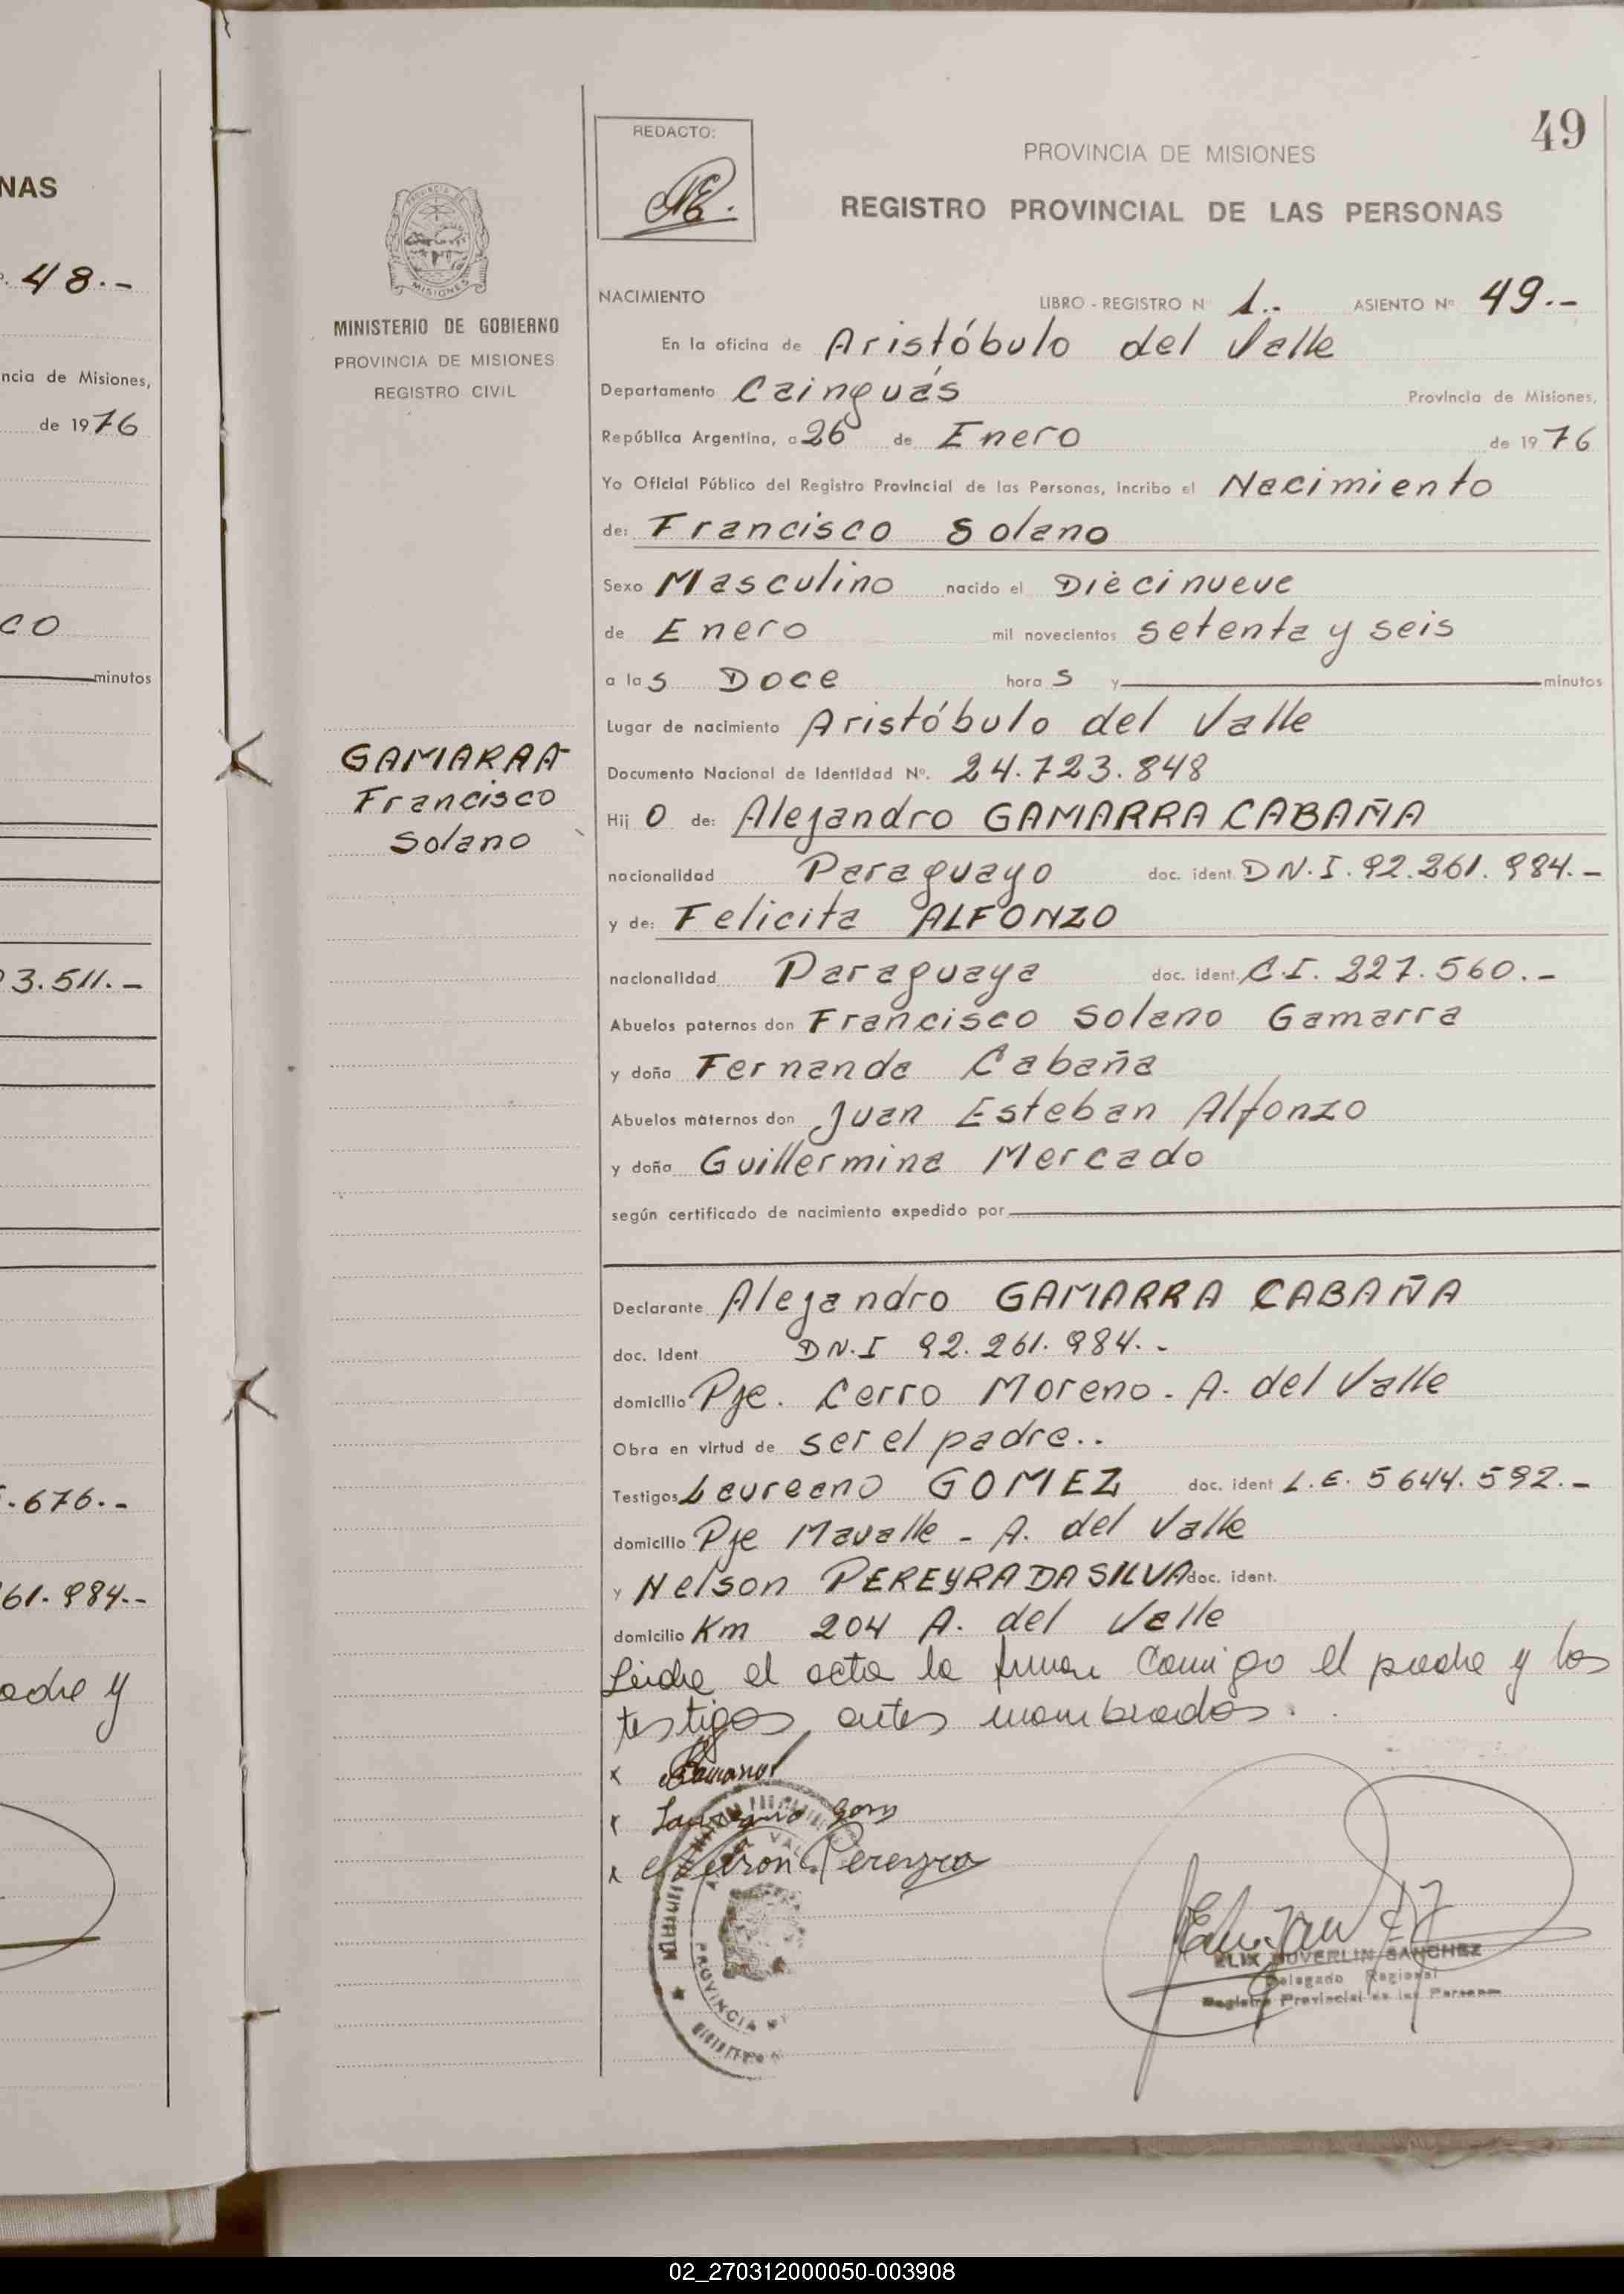 NAS
º. 48.-
ncia de Misiones,
de 1976
co
minutos
3.511.-
.676.-
61.984.-
adre y
49
REDACTO:
PROVINCIA DE MISIONES
REGISTRO PROVINCIAL DE LAS PERSONAS
MISIONES
MINISTERIO DE GOBIERNO
PROVINCIA DE MISIONES
REGISTRO CIVIL
NACIMIENTO LIBRO - REGISTRO Nº 1.- ASIENTO Nº 49.-
En la oficina de Aristóbulo del Valle
Departamento Cainguás Provincia de Misiones,
República Argentina, a 26 de Enero de 1976
Yo Oficial Público del Registro Provincial de las Personas, incribo el Nacimiento
de: Francisco Solano
Sexo Masculino nacido el Diecinueve
de Enero mil novecientos setenta y seis
a las Doce horas y minutos
Lugar de nacimiento Aristóbulo del Valle
GAMARRA
Francisco
Solano
Documento Nacional de Identidad Nº. 24.723.848
Hijo de: Alejandro GAMARRA CABAÑA
nacionalidad Paraguayo doc. ident. D N.I. 92.261.984.-
y de: Felicita ALFONZO
nacionalidad Paraguaya doc. ident. C.I. 227.560.-
Abuelos paternos don Francisco Solano Gamarra
y doña Fernanda Cabaña
Abuelos maternos don Juan Esteban Alfonzo
y doña Guillermina Mercado
según certificado de nacimiento expedido por
Declarante Alejandro GAMARRA CABAÑA
doc. Ident D N.I 92.261.984.-
domicilio Pje. Cerro Moreno - A. del Valle
Obra en virtud de ser el padre..
Testigos Laureano GOMEZ doc. ident L.E. 5644.592.-
domicilio Pje Mavalle - A. del Valle
y Nelson PEREYRA DA SILVA doc. ident.
domicilio Km 204 A. del Valle
Leida el acta la firman Conmigo el padre y los
testigos antes nombrados.
x Gamarra
x Laureano Gomez
x Pereyra
PROVINCIA
ELIX DUVERLIN SANCHEZ
Delegado Regional
Registro Provincial de las Personas
02_270312000050-003908